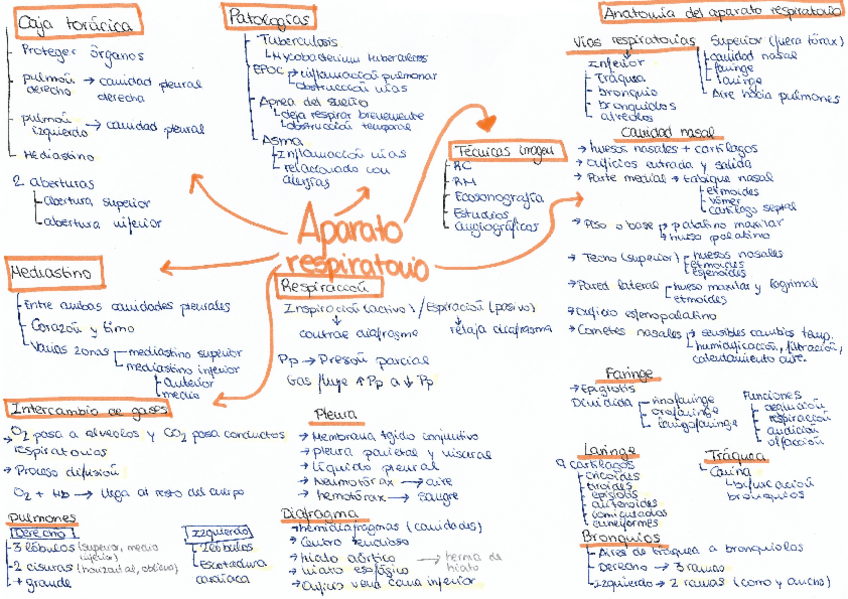 Caja torácica
Proteger órganos
pulmón derecho → cavidad pleural derecha
pulmón izquierdo → cavidad pleural
Mediastino
2 aberturas
abertura superior
abertura inferior
Patologías
Tuberculosis
Mycobacterium tuberculosis
EPOC → inflamación pulmonar
obstrucción vías
Apnea del sueño
deja respirar brevemente
obstrucción temporal
Asma
Inflamación vías
relacionado con alergias
Técnicas imagen
RC
RM
Ecosonografía
Estudios angiográficos
Anatomía del aparato respiratorio
Vías respiratorias
Inferior
Tráquea
bronquio
bronquiolos
alveolos
Superior (fuera tórax)
cavidad nasal
faringe
laringe
Aire hacia pulmones
Cavidad nasal
→ huesos nasales + cartílagos
→ orificios entrada y salida
→ Parte medial → tabique nasal
etmoides
vómer
cartílago septal
→ Piso o base → palatino maxilar
→ hueso palatino
→ Techo (superior) huesos nasales
etmoides
esfenoides
→ Pared lateral hueso maxilar y lagrimal
etmoides
→ Orificio esfenopalatino
→ Cornetes nasales → sensibles cambios temp.
humidificación, filtración,
calentamiento aire.
Aparato
respiratorio
Mediastino
Entre ambas cavidades pleurales
Corazón y timo
Varias zonas mediastino superior
mediastino inferior
anterior
medio
Respiración
Inspiración (activo) / Espiración (pasivo)
contrae diafragma
relaja diafragma
Pp → Presión parcial
Gas fluye ↑ Pp a ↓ Pp
Intercambio de gases
→ O2 pasa a alveolos y CO2 pasa conductos
respiratorios
→ Proceso difusión
O2 + Hb → llega al resto del cuerpo
Pleura
→ Membrana tejido conjuntivo
→ pleura parietal y visceral
→ líquido pleural
→ neumotórax → aire
→ hemotórax → sangre
Faringe
→ Epiglotis
Dividida rinofaringe
orofaringe
laringofaringe
Funciones
deglución
respiración
audición
olfacción
Laringe
9 cartílagos
cricoides
tiroides
epiglotis
aritenoides
corniculados
cuneiformes
Tráquea
Carina
bifurcación
bronquios
Pulmones
Derecho
3 lóbulos (superior, medio
inferior)
2 cisuras (horizontal, oblicua)
+ grande
Izquierdo
2 lóbulos
Escotadura
cardíaca
Diafragma
→ hemidiafragmas (cavidades)
→ Centro tendioso
→ hiato aórtico
→ hiato esofágico → hernia de hiato
→ Orificio vena cava inferior
Bronquios
Aires de tráquea a bronquiolos
Derecho → 3 ramas
Izquierdo → 2 ramas (corto y ancho)